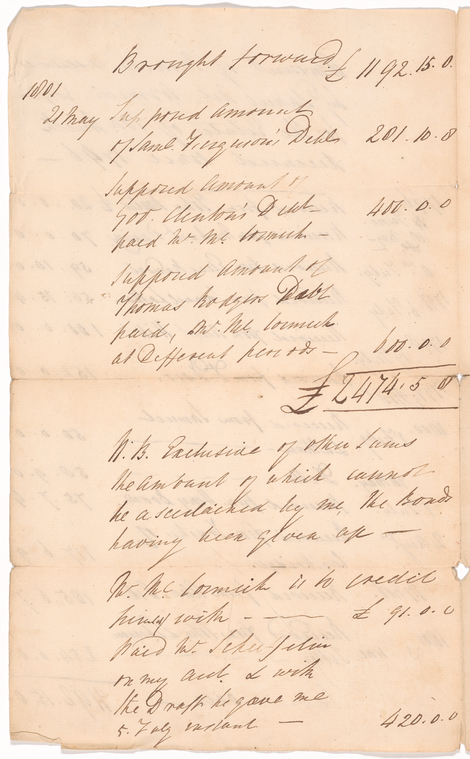 Brought forward £ 1192.15.0
1801
21 May Supposed amount
of Saml. Ferguson's Debt 281.10.0
Supposed Amount of
Gov. Clinton's Debt
paid Mr. Mc Cormick — 400.0.0
Supposed Amount of
Thomas Rodgers Debt
paid, Mr. Mc Cormick
at Different periods — 600.0.0
£ 2474.5.0
N.B. Exclusive of other Sums
the amount of which cannot
be asceclained by me, the Bonds
having been given up —
Mr. Mc Cormick is to credit
himself with — £ 91.0.0
Paid Mr.
on my acct. & with
the Draft he gave me
5. July instant — 420.0.0